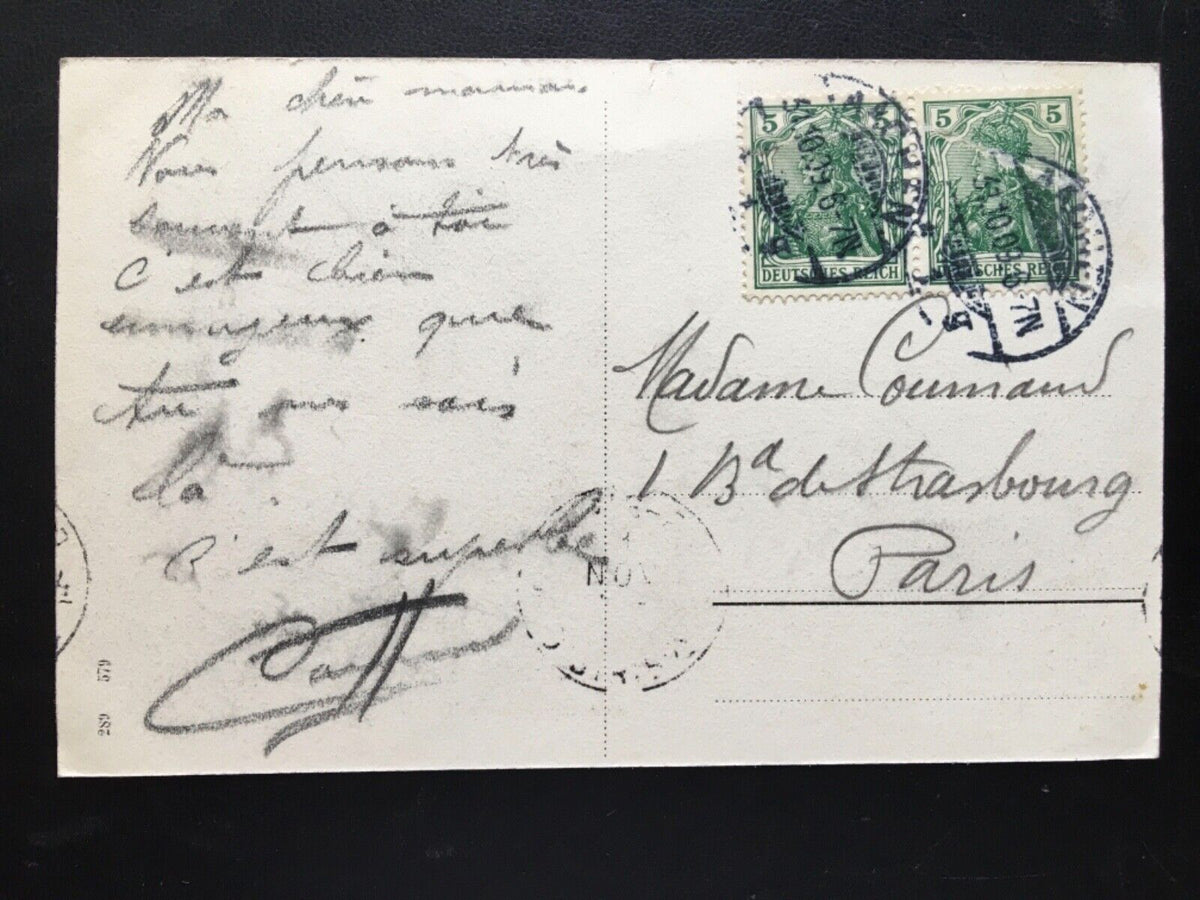 Ma chère maman.
Nous pensons très
souvent à toi
c'est bien
ennuyeux que
tu ne sois
là
c'est superbe
5 5
DEUTSCHES REICH DEUTSCHES REICH
AACHEN
31.10.09. 6-7N
AACHEN
31.10.09. 6-7N
Madame Coumaud
1 Bd de Strasbourg
Paris
NOV
289 579